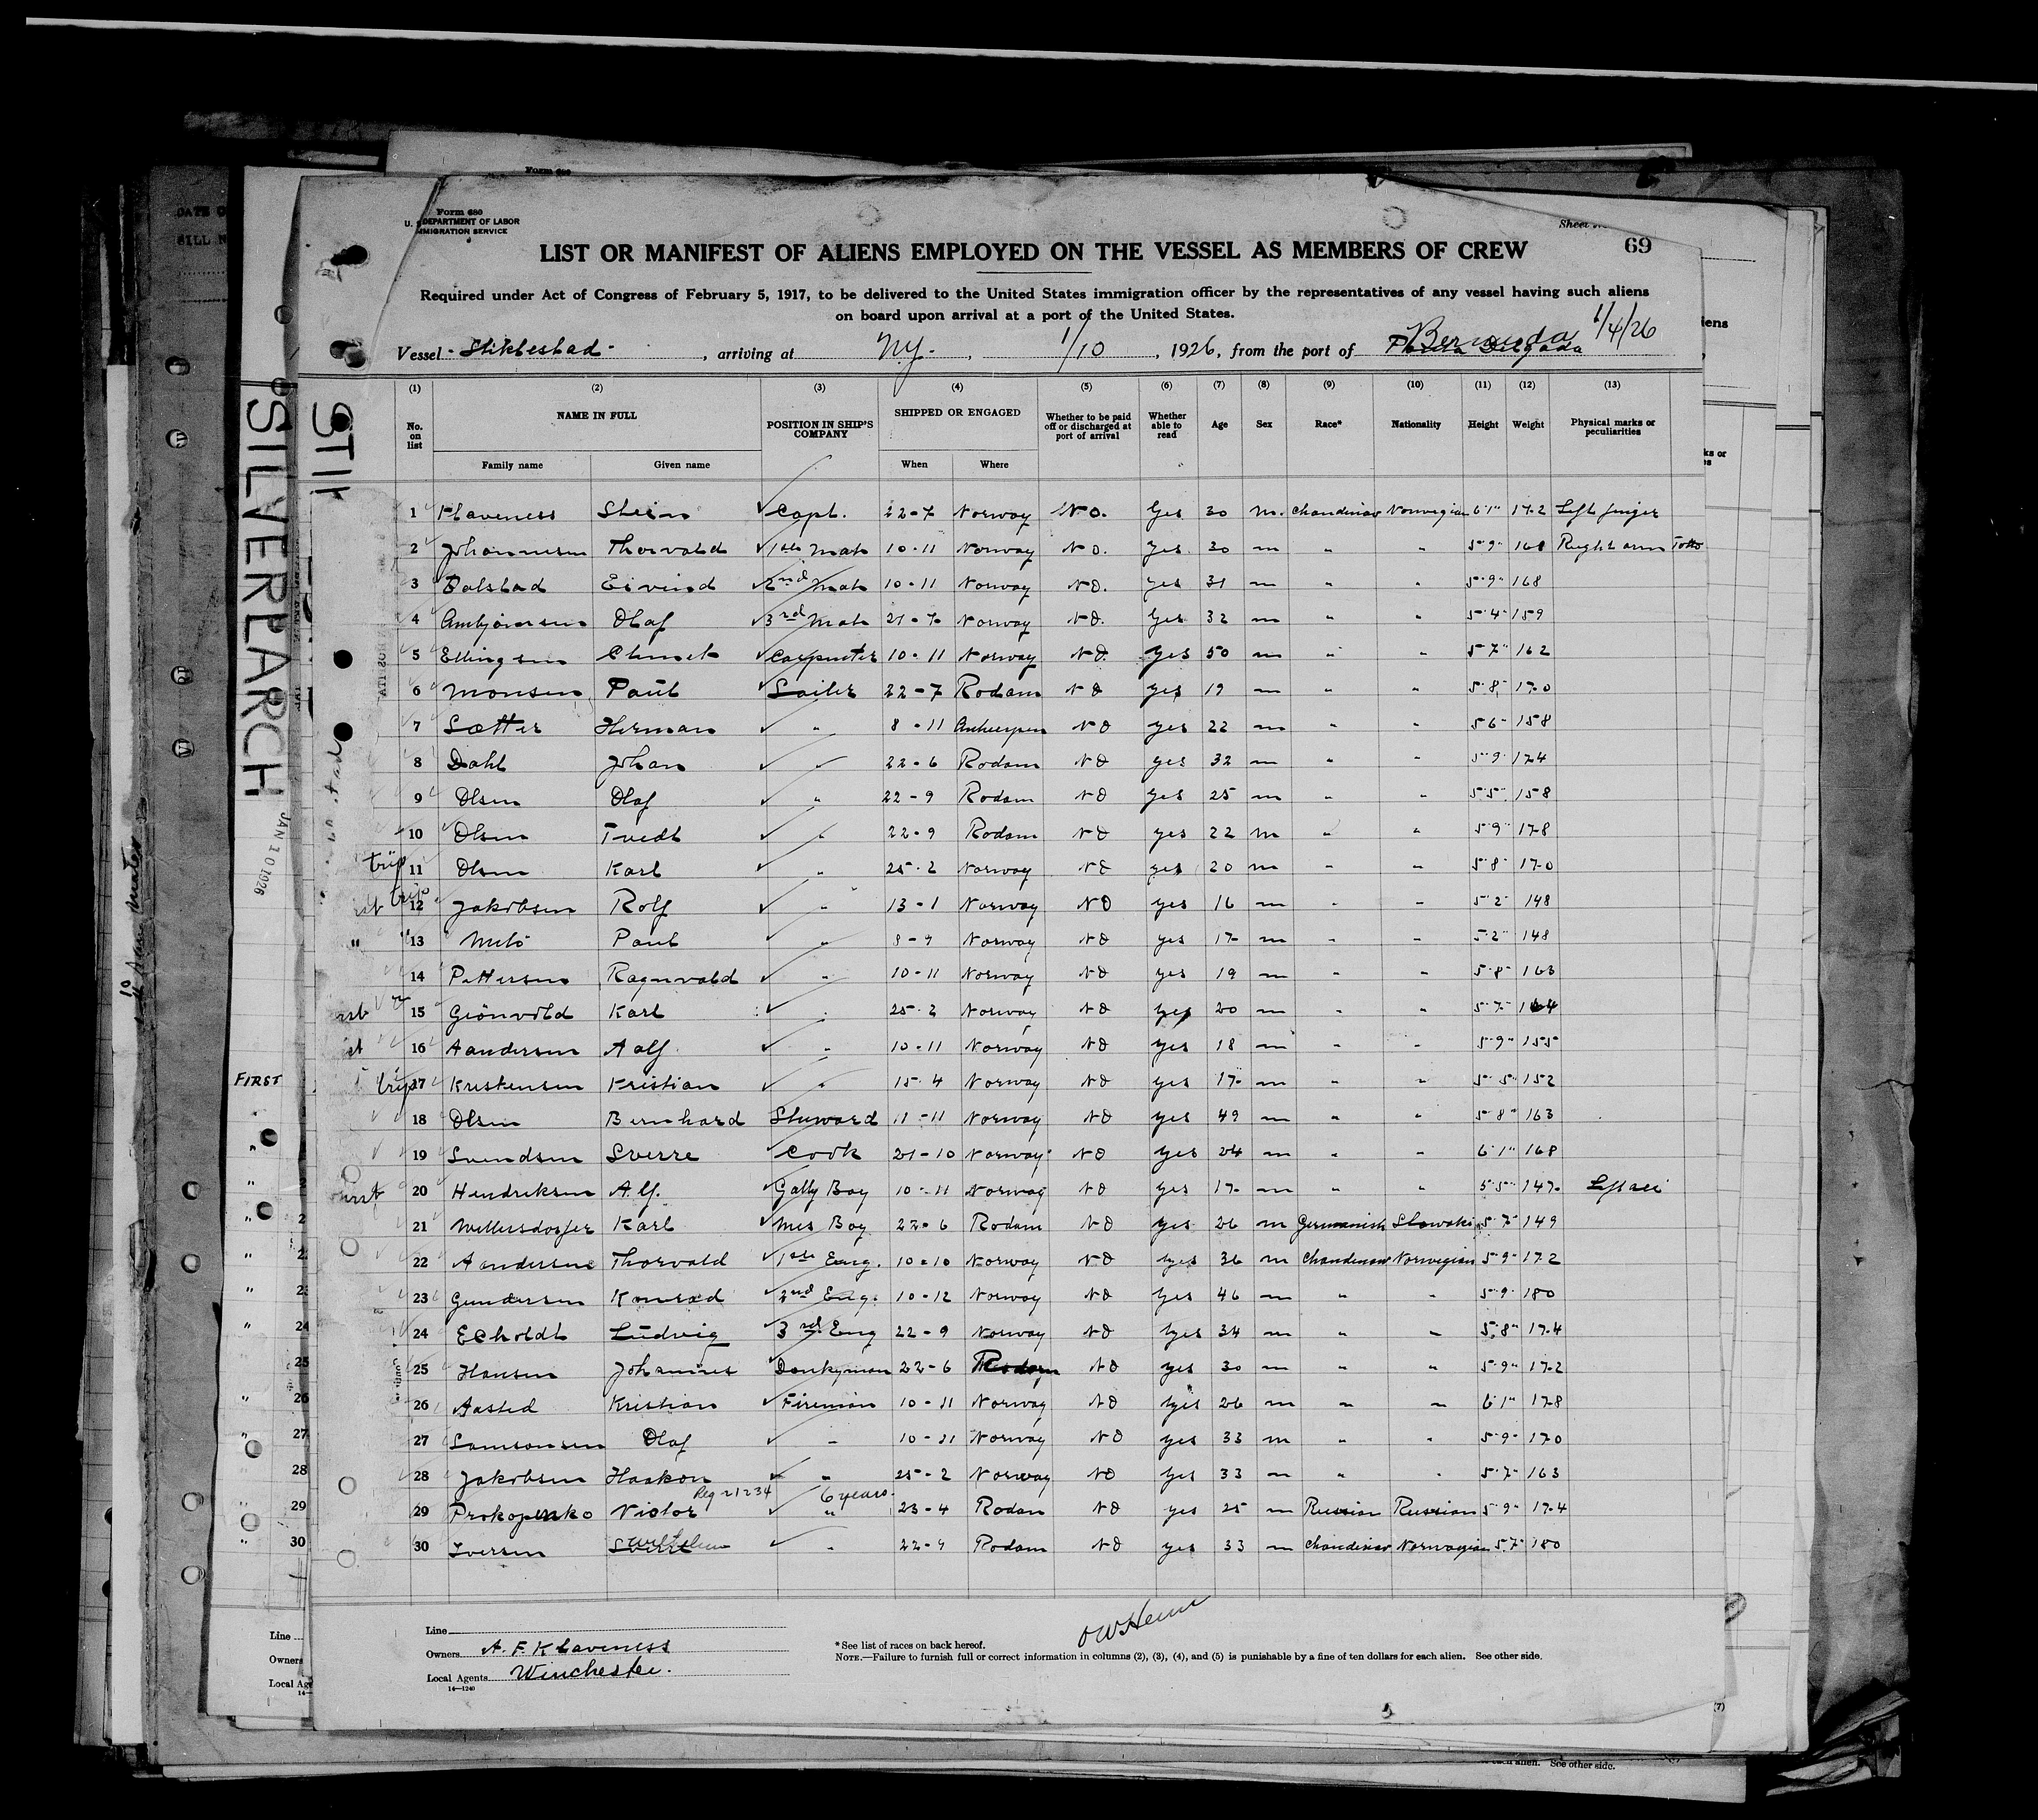 Form 680
U. S. DEPARTMENT OF LABOR
IMMIGRATION SERVICE
Sheet No.
69
LIST OR MANIFEST OF ALIENS EMPLOYED ON THE VESSEL AS MEMBERS OF CREW
Required under Act of Congress of February 5, 1917, to be delivered to the United States immigration officer by the representatives of any vessel having such aliens
on board upon arrival at a port of the United States.
Vessel Stiklestad, arriving at N.Y., 1/10, 1926, from the port of Ponta Delgada Bermuda 1/4/26
(1) (2) (3) (4) (5) (6) (7) (8) (9) (10) (11) (12) (13)
No. on list NAME IN FULL Family name Given name POSITION IN SHIP'S COMPANY SHIPPED OR ENGAGED When Where Whether to be paid off or discharged at port of arrival Whether able to read Age Sex Race* Nationality Height Weight Physical marks or peculiarities
1 Klaveness Stein Capt. 22-7 Norway No. Yes 30 m. Chandinav Norwegian 6'1" 172 Left finger
2 Johannesen Thorvald 1ste Mate 10-11 Norway No. Yes 30 m " " 5'9" 168 Right arm Tatto
3 Dalstad Eivind 2nd Mate 10-11 Norway No. Yes 31 m " " 5'9" 168
4 Ambjörnsen Olaf 3rd Mate 21-7 Norway No. Yes 32 m " " 5'4" 159
5 Ellingsen Carpenter 10-11 Norway No. Yes 50 m " " 5'7" 162
6 Monsen Paul Sailer 22-7 Rodam No Yes 19 m " " 5'8" 170
7 Sætter Herman " 8-11 Antwerpen No Yes 22 m " " 5'6" 158
8 Dahl Johan " 22-6 Rodam No Yes 32 m " " 5'9" 174
9 Olsen Olaf " 22-9 Rodam No Yes 25 m " " 5'5" 158
10 Olsen Tvedt " 22-9 Rodam No Yes 22 m " " 5'9" 178
trip 11 Olsen Karl " 25-2 Norway No Yes 20 m " " 5'8" 170
1st trip 12 Jakobsen Rolf " 13-1 Norway No Yes 16 m " " 5'2" 148
" " 13 Paul " Norway No Yes 17 m " " 5'2" 148
14 Pettersen Ragnvald " 10-11 Norway No Yes 19 m " " 5'8" 163
15 Grönvold Karl " 25-2 Norway No Yes 20 m " " 5'7" 164
16 Aandersen Aalf " 10-11 Norway No Yes 18 m " " 5'9" 155
trip 17 Kristensen Kristian " 15-4 Norway No Yes 17 m " " 5'5" 152
18 Olsen Bernhard Stuward 11-11 Norway No Yes 49 m " " 5'8" 163
19 Svendsen Sverre Cook 21-10 Norway No Yes 24 m " " 6'1" 168
20 Hendriksen Alf. Gally Boy 10-11 Norway No Yes 17 m " " 5'5" 147
21 Wellersdorfer Karl Mes Boy 22-6 Rodam No Yes 26 m Germanish Slowaki 5'7" 149
22 Aandersen Thorvald 1ste Eng. 10-10 Norway No Yes 36 m Chandinav Norwegian 5'9" 172
23 Gundersen Konrad 2nd Eng. 10-12 Norway No Yes 46 m " " 5'9" 180
24 Echoldt Ludvig 3rd Eng 22-9 Norway No Yes 34 m " " 5'8" 174
25 Hansen Johannes Donkyman 22-6 Rodam No Yes 30 m " " 5'9" 172
26 Aasted Kristian Fireman 10-11 Norway No Yes 26 m " " 6'1" 178
27 Samsonsen Olaf " 10-11 Norway No Yes 33 m " " 5'9" 170
28 Jakobsen Haakon " 25-2 Norway No Yes 33 m " " 5'7" 163
Reg 21234 6 years
29 Prokopenko Victor " 23-4 Rodam No Yes 25 m Russian Russian 5'9" 174
30 Iversen " 22-9 Rodam No Yes 33 m Chandinav Norwegian 5'7" 180
Line
Owners A. F. Klaveness
Local Agents Winchester.
14—1240
*See list of races on back hereof.
NOTE.—Failure to furnish full or correct information in columns (2), (3), (4), and (5) is punishable by a fine of ten dollars for each alien. See other side.
SILVERLARCH
JAN 10 1926
STIK
FIRST
25
26
27
28
29
30
Line
Owners
Local Ag
(7)
each alien. See other side.